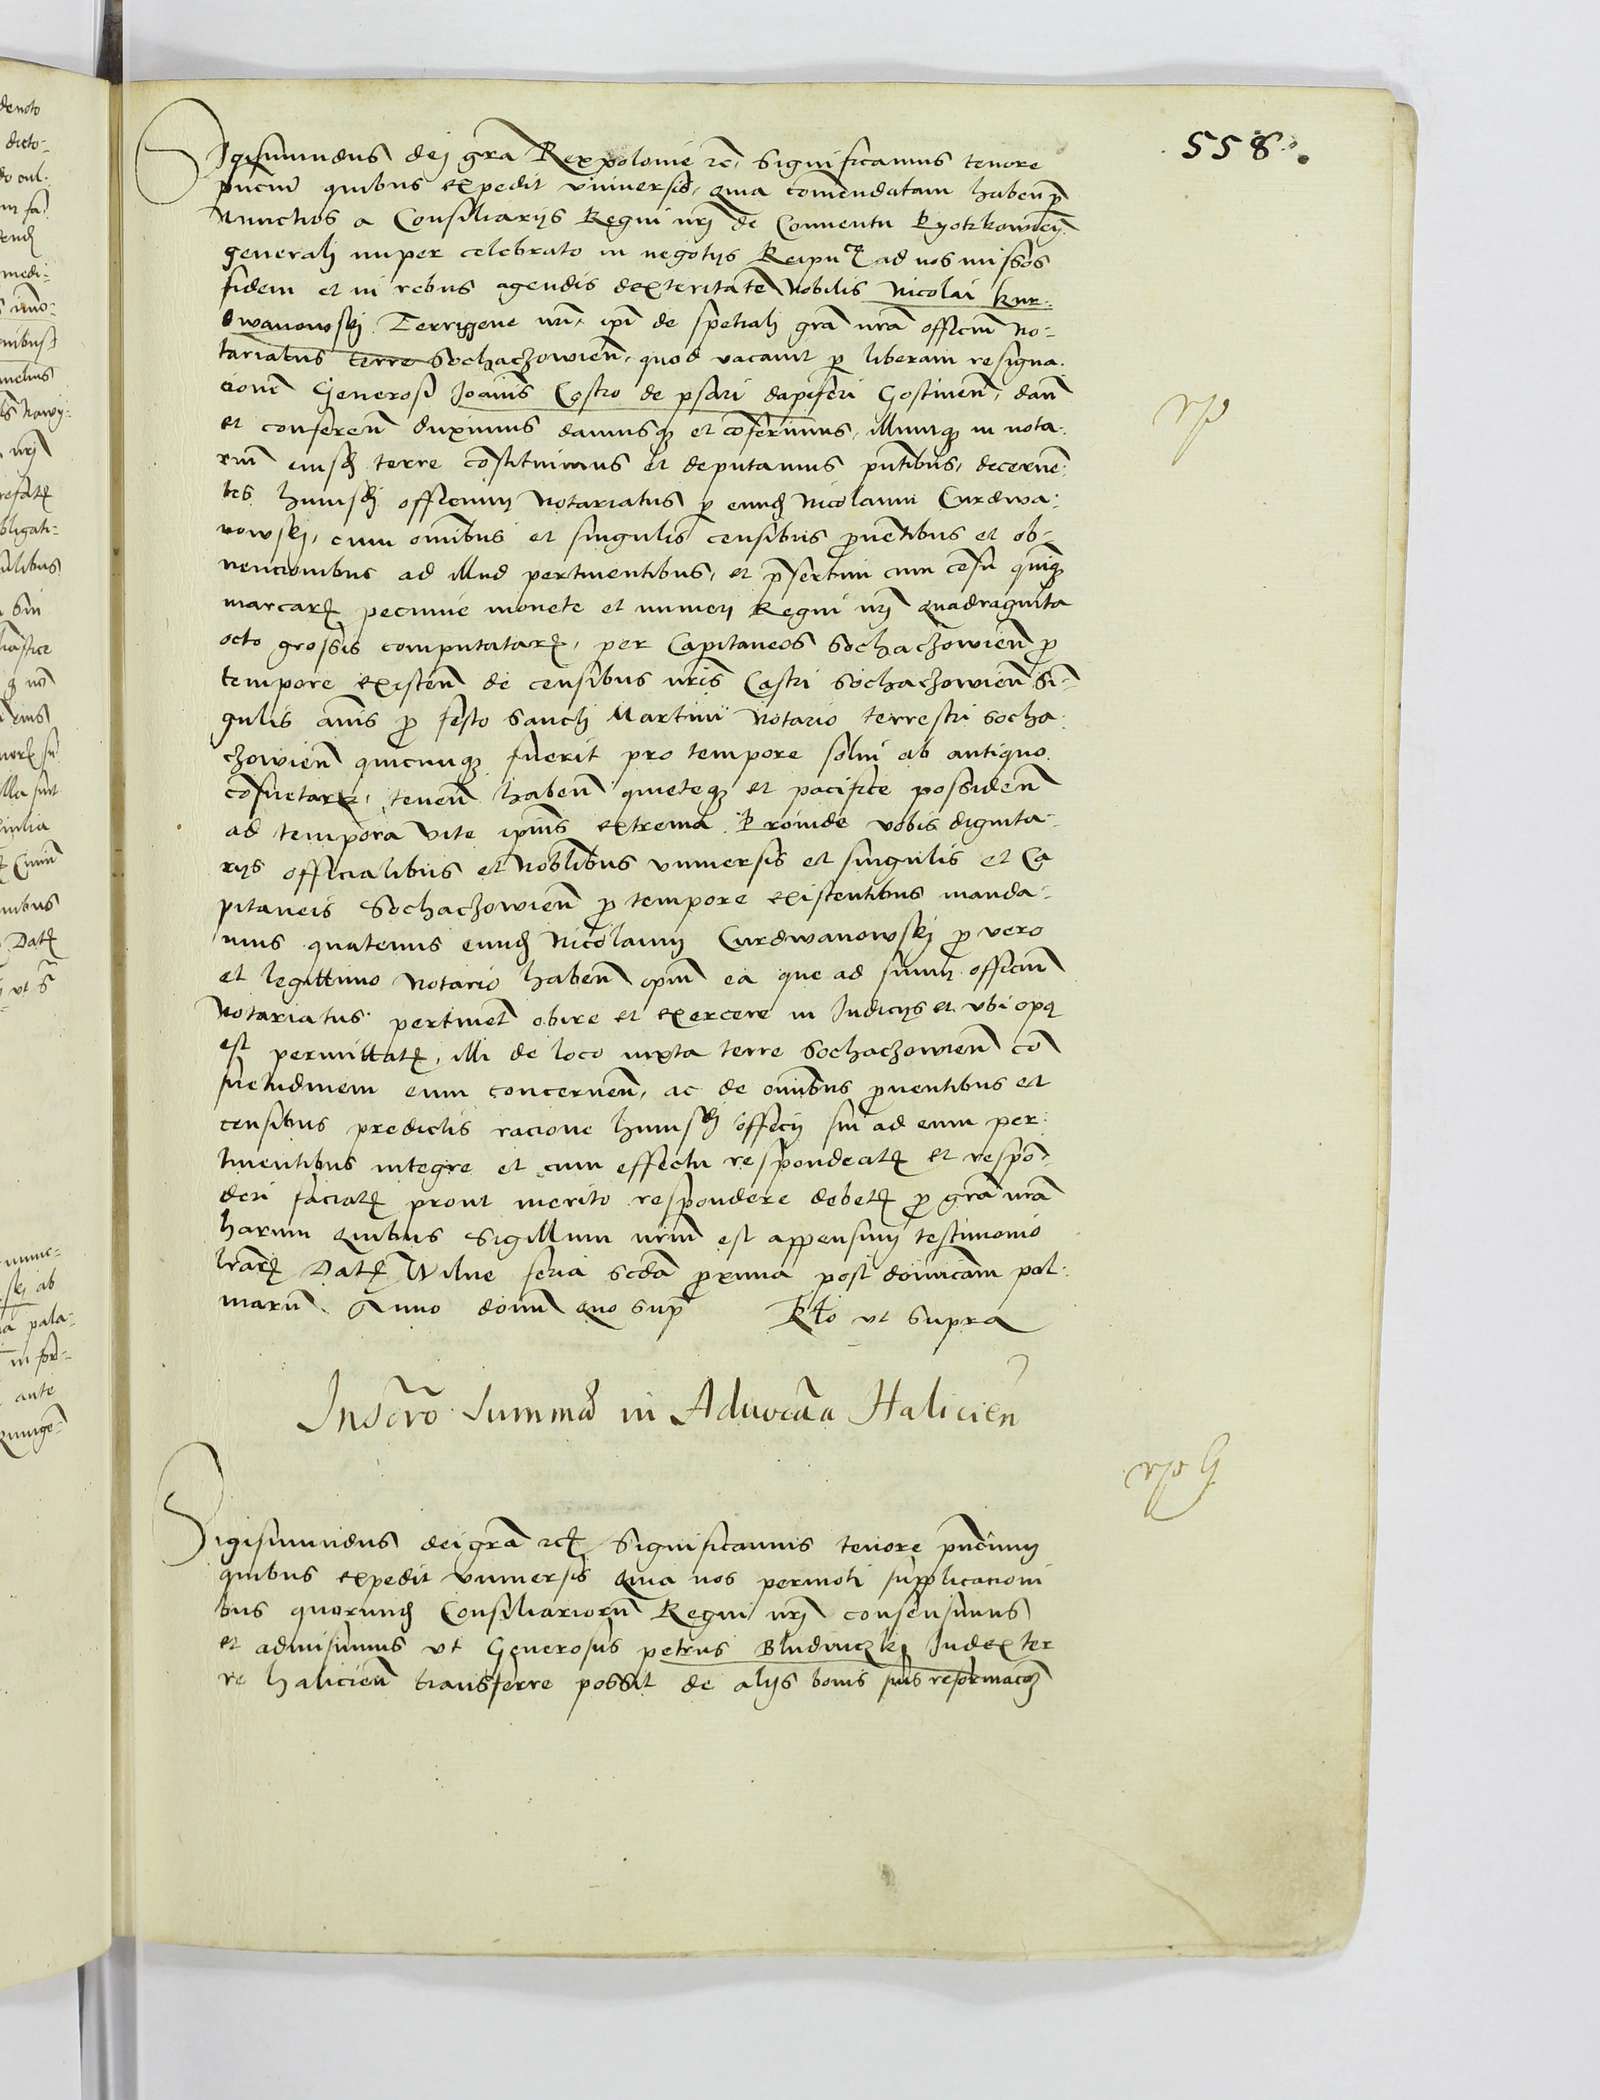 558
Sigismundus dei gra Rex polonie zc, Significamus tenore
pncium quibus expedit vniuersis, Quia comendatam haben p
Nuncios a Consiliarijs Regni nrj de Conuentu Pyotrkowien
generalj nuper celebrato in negotijs Reipuce ad nos missos
fidem et in rebus agendis dexteritatem Nobilis Nicolai kur-
dwanowskj Terrigene nri, ipi de spetialj gra nra officium No-
tariatus terre Sochaczowien, quod vacauit p liberam resigna-
cionem Generosi Joannis Costro de psari dapiferi Gostinen, dan
et conferen duximus damusq et conferimus, illumq in nota-
rium eiusd terre constituimus et deputamus pntibus, decernen-
tes huiusd officium Notariatus p eund Nicolaum Curdwa-
nowskj, cum omibus et singulis censibus prouentibus et ob-
uencionibus ad illud pertinentibus, et psertim cum censu quinq
marcar pecunie monete et numerj Regni nrj Quadraginta
octo grossis computatar, per Capitaneos Sochaczowien p
tempore existen de censibus nris Castri Sochaczowien Sin-
gulis annis p festo Sancti Martini Notario terrestri Socha-
czowien quicunq fuerit pro tempore solui ab antiquo
consuetar, tenen haben quieteq et pacifice possiden
ad tempora vite ipius extrema. Proinde vobis dignita-
rijs officialibus et Noblibus vniuersis et singulis et Ca
pitaneis Sochaczowien p tempore existentibus manda-
mus quatenus eund Nicolaum Curdwanowskj p vero
et legittimo Notario haben ipm ea que ad suum officium
Notariatus pertinet obire et exercere in Judicijs et vbi opq
est permittat, illi de loco iuxta terre Sochaczowien con
suetudinem eum concernen, ac de omibus prouentibus et
censibus predictis racione huiusd officij sui ad eum per-
tinentibus integre et cum effectu respondeat et respon-
deri faciat prout merito respondere debet p gra nra
harum Quibus Sigillum nrm est appensum testimonio
lrar Dat Wilne feria scda proxima post dominicam pal-
marum Anno domini Quo sup Rlo vt supra
rp
Inscro Summa in Aduocaa Halicien
rp G
Sigismundus dei gra zc Significamus tenore pncium
quibus expedit vniuersis Quia nos permoti supplicacioni
bus quorund Consiliariorum Regni nrj consensimus
et admisimus vt Generosus petrus Bludniczkj Judex ter
re halicien transferre possit de alijs bonis suis reformacoz